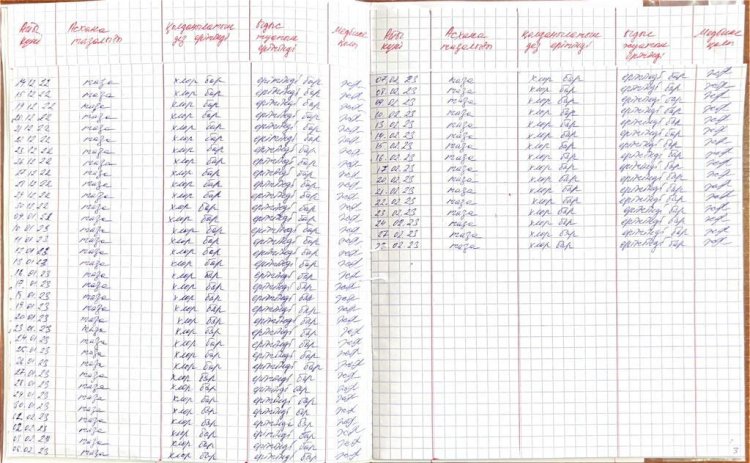 Айы күні Асхана тазалығы Қолданылатын дез ерітінді Ыдыс жуатын ерітінді Медбике қолы
14 12 22 таза хлор бар ерітінді бар
15 12 22 таза хлор бар ерітінді бар
19 12 22 таза хлор бар ерітінді бар
20 12 22 таза хлор бар ерітінді бар
21 12 22 таза хлор бар ерітінді бар
22 12 22 таза хлор бар ерітінді бар
23 12 22 таза хлор бар ерітінді бар
26 12 22 таза хлор бар ерітінді бар
27 12 22 таза хлор бар ерітінді бар
12 22 таза хлор бар ерітінді бар
12 22 таза хлор бар ерітінді бар
12 22 таза хлор бар ерітінді бар
09 01 таза хлор бар ерітінді бар
10 01 23 таза хлор бар ерітінді бар
11 01 23 таза хлор бар ерітінді бар
12 01 23 таза хлор бар ерітінді бар
13 01 23 таза хлор бар ерітінді бар
16 01 23 таза хлор бар ерітінді бар
17 01 23 таза хлор бар ерітінді бар
18 01 23 таза хлор бар ерітінді бар
19 01 23 таза хлор бар ерітінді бар
20 01 23 таза хлор бар ерітінді бар
23 01 23 таза хлор бар ерітінді бар
24 01 23 таза хлор бар ерітінді бар
25 01 23 таза хлор бар ерітінді бар
26 01 23 таза хлор бар ерітінді бар
27 01 23 таза хлор бар ерітінді бар
28 01 23 таза хлор бар ерітінді бар
29 01 23 таза хлор бар ерітінді бар
30 01 23 таза хлор бар ерітінді бар
02 23 таза хлор бар ерітінді бар
02 23 таза хлор бар ерітінді бар
03 02 23 таза хлор бар ерітінді бар
06 02 23 таза хлор бар ерітінді бар
Айы күні Асхана тазалығы Қолданылатын дез ерітінді Ыдыс жуатын ерітінді Медбике қолы
07 02 23 таза хлор бар ерітінді бар
08 02 23 таза хлор бар ерітінді бар
09 02 23 таза хлор бар ерітінді бар
10 02 23 таза хлор бар ерітінді бар
13 02 23 таза хлор бар ерітінді бар
14 02 23 таза хлор бар ерітінді бар
15 02 23 таза хлор бар ерітінді бар
16 02 23 таза хлор бар ерітінді бар
17 02 23 таза хлор бар ерітінді бар
20 02 23 таза хлор бар ерітінді бар
21 02 23 таза хлор бар ерітінді бар
22 02 23 таза хлор бар ерітінді бар
23 02 23 таза хлор бар ерітінді бар
24 02 23 таза хлор бар ерітінді бар
27 02 23 таза хлор бар ерітінді бар
02 23 таза хлор бар ерітінді бар
3